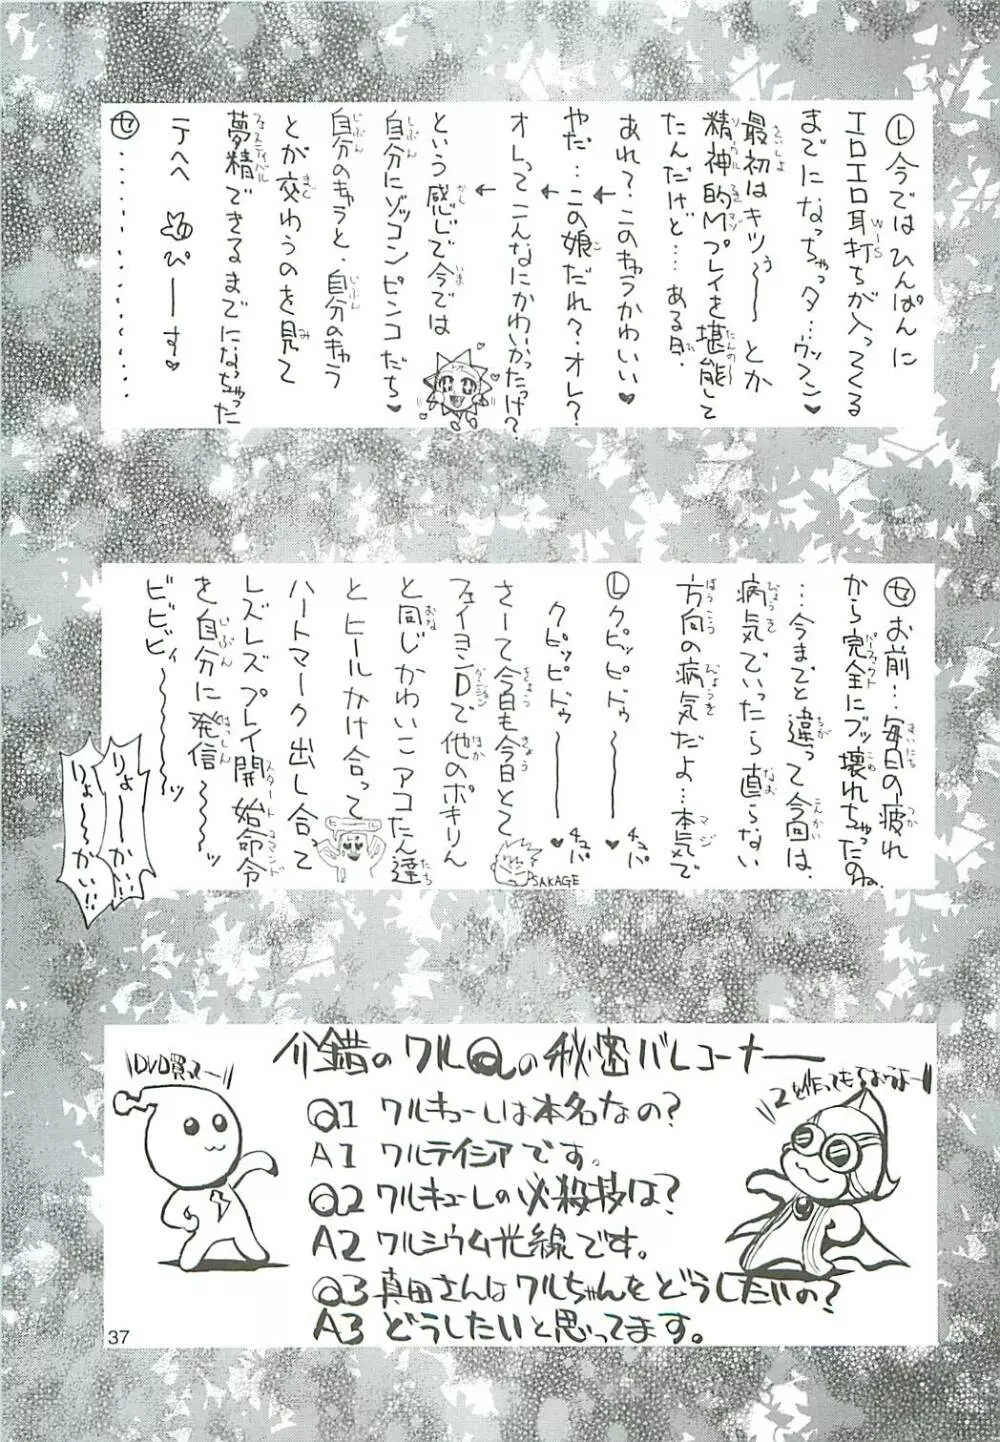 Ⓛ今ではひんぱんに
エロエロ耳打ちが入ってくる
WIS
までになっちゃっタ…ウッフン♥
最初はキツぅ～～とか
さいしょ
精神的Mプレイを堪能して
たんだけど…ある日、
あれ?このキャラかわいい♥
やだ…この娘だれ?オレ?
オレってこんなにかわいかったっけ?
という感じで今では
自分にゾッコンピンコだち♥
自分のキャラと、自分のキャラ
とが交わうのを見て
夢精できるまでになっちゃった
フェスティバル
テヘへ ぴーーす♥
㋝…………………
㋝お前…毎日の疲れ
から完全にブッ壊れちゃったのね
パーフェクト
…今までと違って今回は、
病気でいったら直らない
方向の病気だよ…本気で
マジ
Ⓛクピッピドゥ～～～♥
チュパ
クピッピドゥ～～～♥
チュパ
さーて今日も今日とて
フェイヨンDで他のポキリん
ダンジョン
と同じかわいこアコたん達
とヒールかけ合って
ハートマーク出し合って
レズレズプレイ開始命令
スタートコマンド
を自分に発信～～～ッ
ビビビィ～～～～ッ
SAKAGE
りょ～～かい!!
りょ～～かい!!
介錯のワルQの秘密バレコーナー
DVD買ってー
2を作ってもらおうよー
Q1 ワルキューレは本名なの?
A1 ワルテイシアです。
Q2 ワルキューレの必殺技は?
A2 ワルシウム光線です。
Q3 真田さんはワルちゃんをどうしたいの?
A3 どうしたいと思ってます。
37